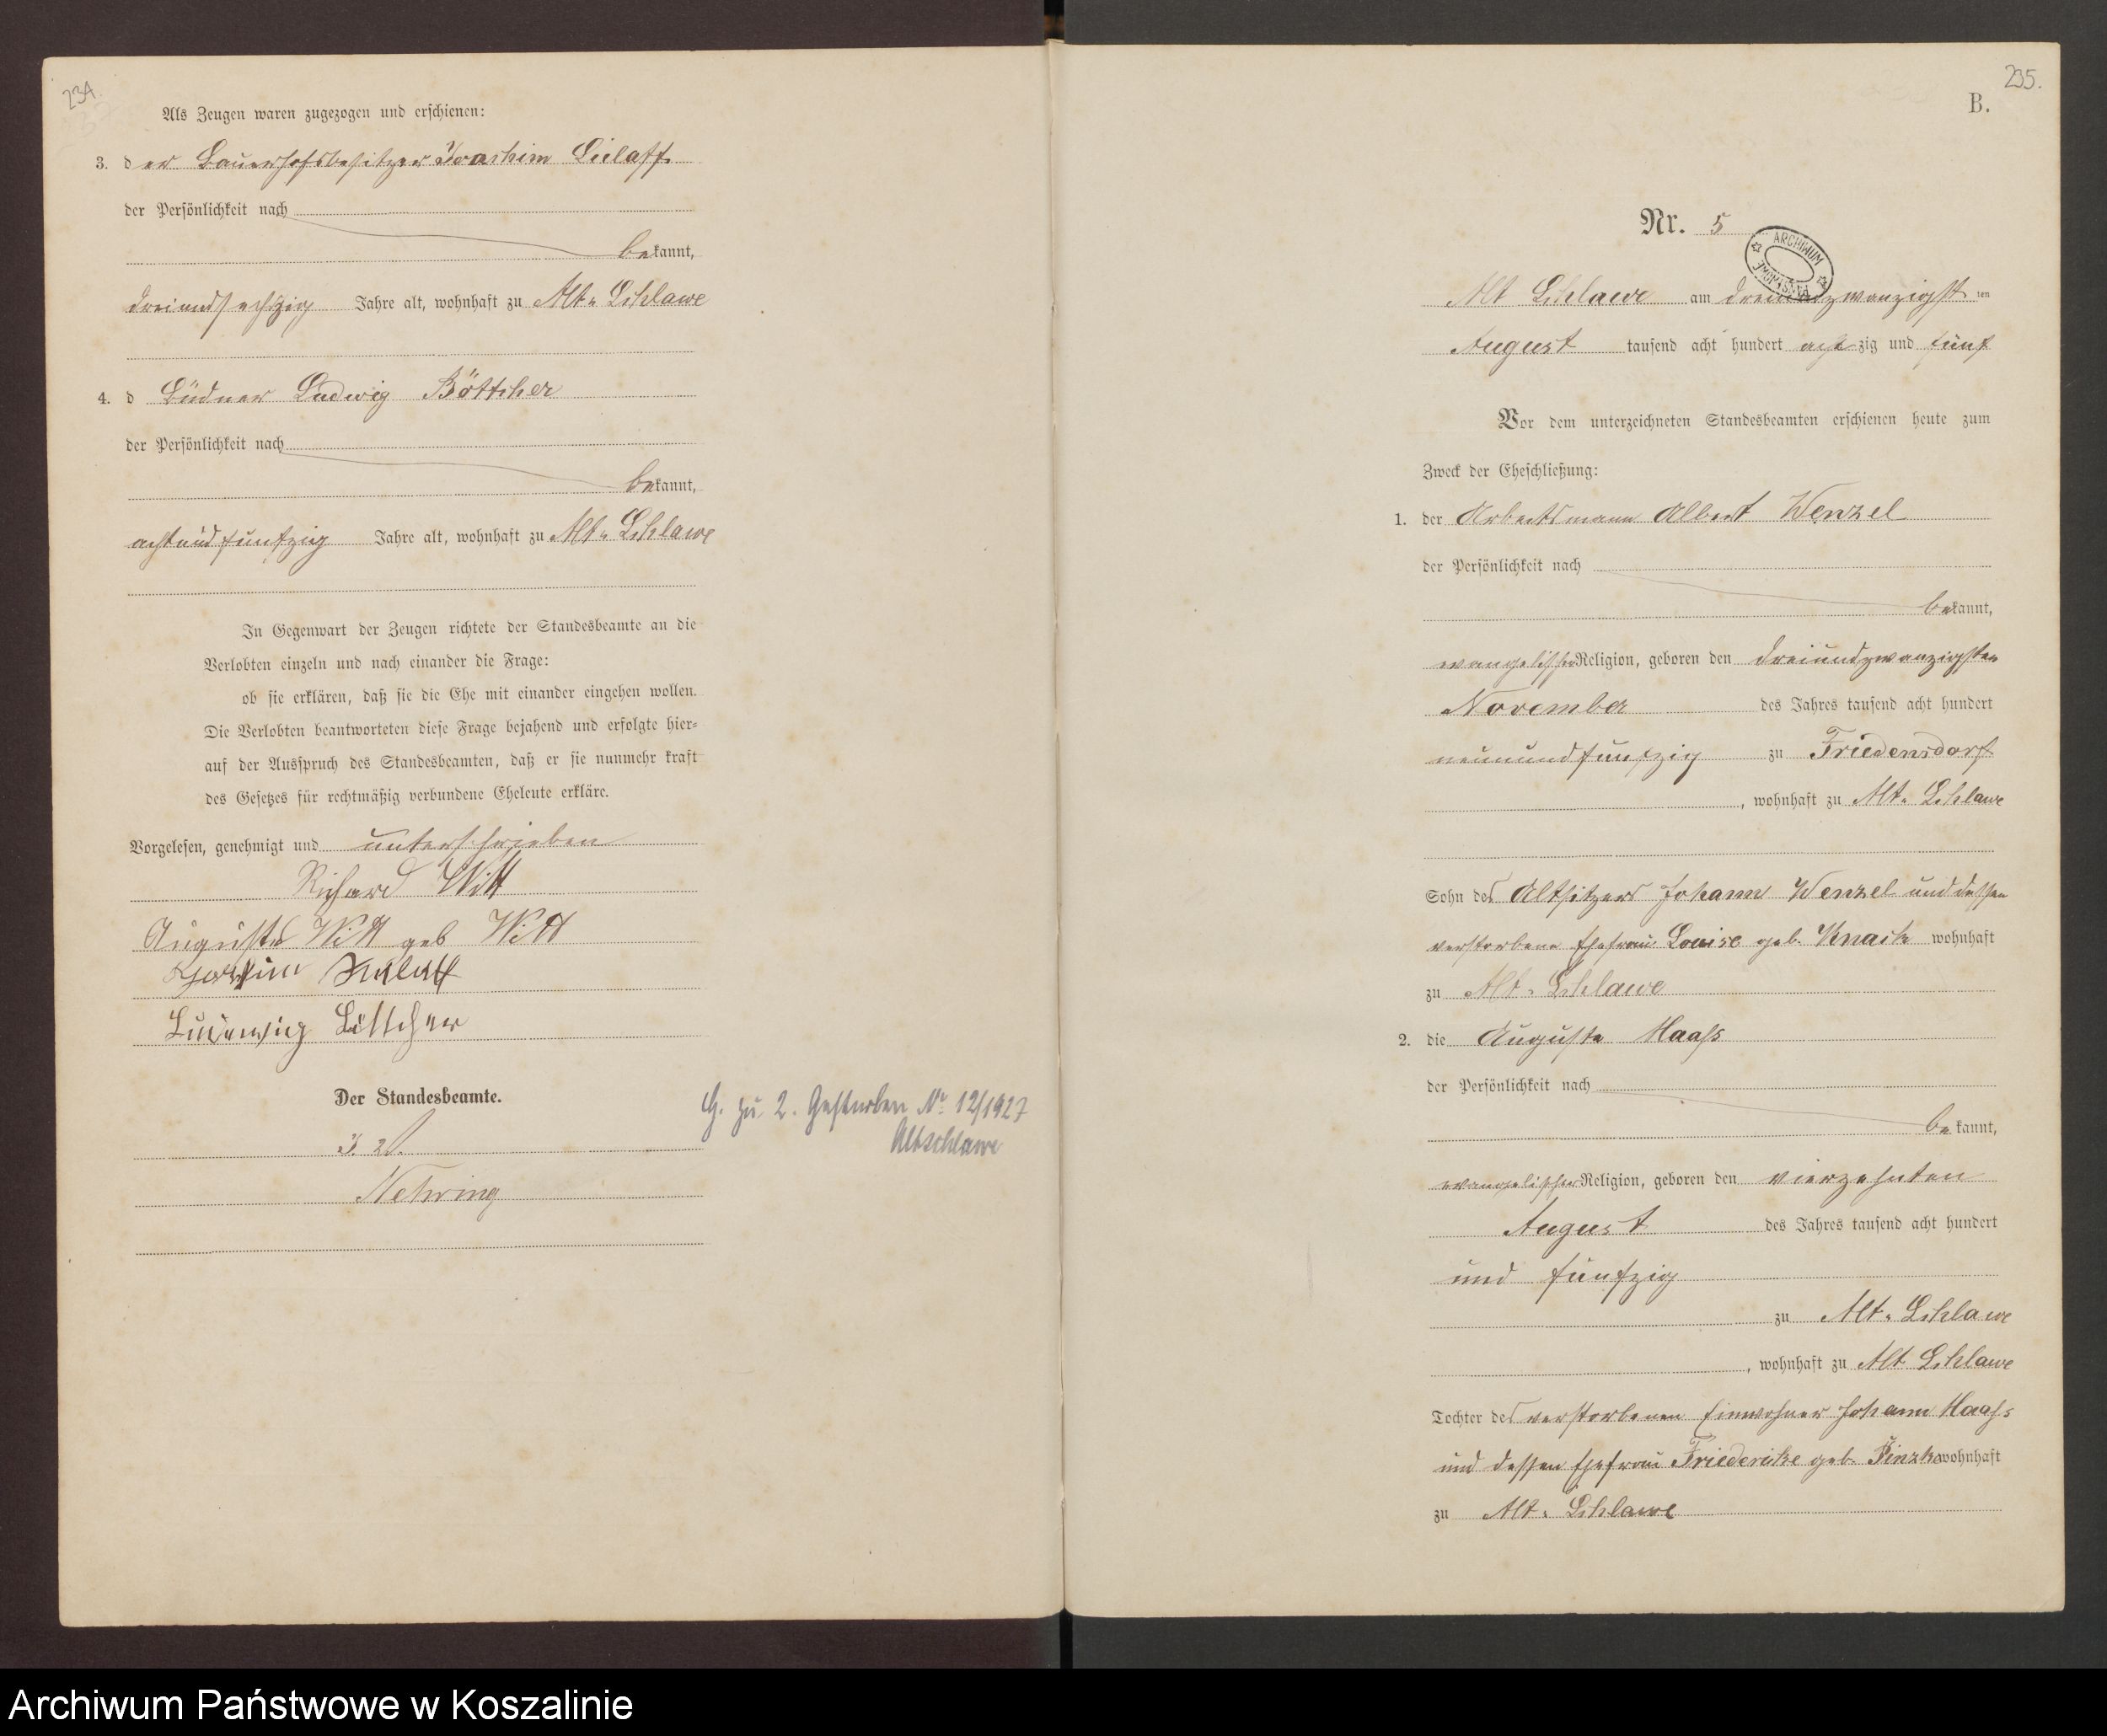 234.
Als Zeugen waren zugezogen und erschienen:
3. der Bauerhofsbesitzer Joachim Sielaff
der Persönlichkeit nach
bekannt,
dreiundsechzig Jahre alt, wohnhaft zu Alt-Schlawe
4. d Büdner Ludwig Böttcher
der Persönlichkeit nach
bekannt,
achtundfünfzig Jahre alt, wohnhaft zu Alt-Schlawe
In Gegenwart der Zeugen richtete der Standesbeamte an die
Verlobten einzeln und nach einander die Frage:
ob sie erklären, daß sie die Ehe mit einander eingehen wollen.
Die Verlobten beantworteten diese Frage bejahend und erfolgte hier-
auf der Ausspruch des Standesbeamten, daß er sie nunmehr kraft
des Gesetzes für rechtmäßig verbundene Eheleute erkläre.
Vorgelesen, genehmigt und unterschrieben
Richard Witt
Auguste Witt geb Witt
Joachim
Ludewig Böttcher
Der Standesbeamte.
Nehring
G. zu 2. Gestorben Nr 12/1927
Altschlawe
235.
B.
Nr. 5
ARCHIWUM PAŃSTWOWE
Alt Schlawe am dreiundzwanzigsten
August tausend acht hundert achtzig und fünf
Vor dem unterzeichneten Standesbeamten erschienen heute zum
Zweck der Eheschließung:
1. der Arbeitsmann Albert Wenzel
der Persönlichkeit nach
bekannt,
evangelischer Religion, geboren den dreiundzwanzigsten
November des Jahres tausend acht hundert
neunundfünfzig zu Friedensdorf
, wohnhaft zu Alt-Schlawe
Sohn des Altsitzers Johann Wenzel und dessen
verstorbene Ehefrau Louise geb. Knack wohnhaft
zu Alt-Schlawe
2. die Auguste Haaß
der Persönlichkeit nach
bekannt,
evangelischer Religion, geboren den vierzehnten
August des Jahres tausend acht hundert
und fünfzig
zu Alt-Schlawe
, wohnhaft zu Alt Schlawe
Tochter des verstorbenen Einwohner Johann Haaß
und dessen Ehefrau Friedericke geb. wohnhaft
zu Alt-Schlawe
Archiwum Państwowe w Koszalinie